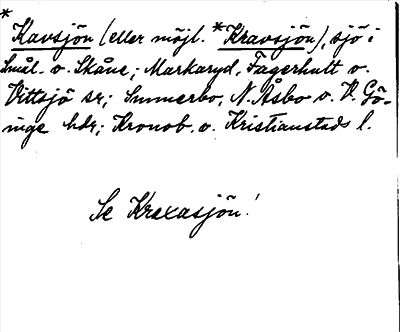 *
Kavsjön (eller möjl. *Kravsjön), sjö i
Smål. o. Skåne; Markaryd, Fagerhult o.
Vittsjö sr; Sunnerbo, N. Åsbo o. V. Gö-
inge hdr; Kronob. o. Kristianstads l.
Se Kraxasjön!